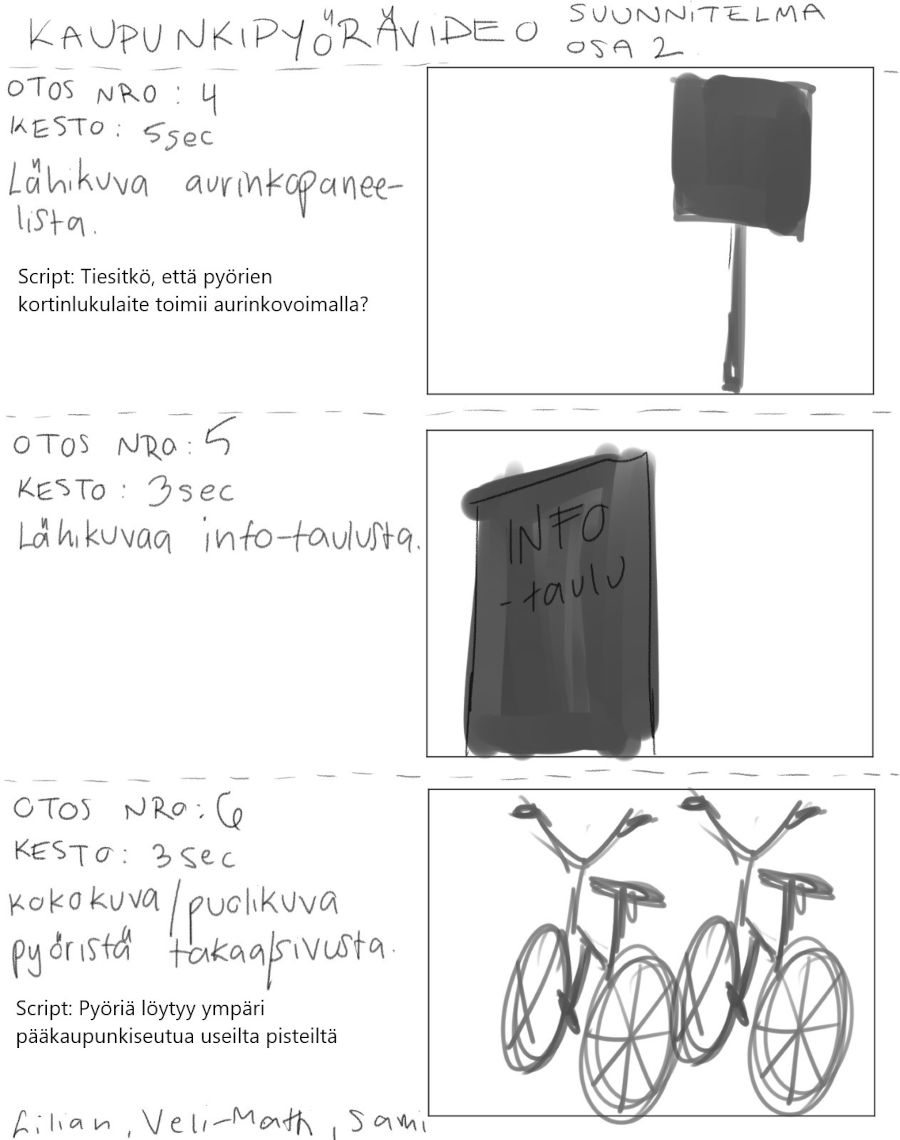 KAUPUNKIPYÖRÄVIDEO SUUNNITELMA
OSA 2
OTOS NRO: 4
KESTO: 5sec
Lähikuva aurinkopanee-
lista.
Script: Tiesitkö, että pyörien
kortinlukulaite toimii aurinkovoimalla?
OTOS NRO: 5
KESTO: 3sec
Lähikuvaa info-taulusta.
INFO
-taulu
OTOS NRO: 6
KESTO: 3sec
kokokuva/puolikuva
pyöristä takaa/sivusta.
Script: Pyöriä löytyy ympäri
pääkaupunkiseutua useilta pisteiltä
Lilian, Veli-Matti, Sami